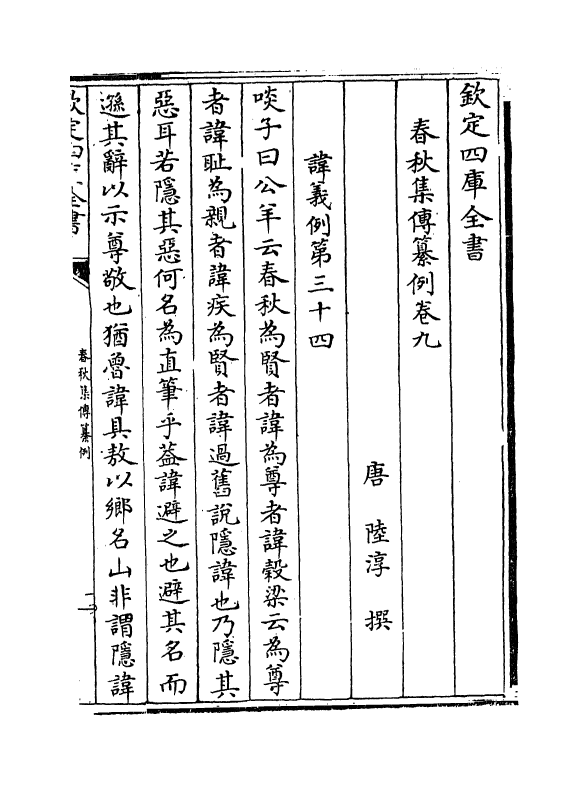 欽定四庫全書
春秋集傳纂例卷九
唐 陸淳 撰
諱義例第三十四
啖子曰公羊云春秋為賢者諱為尊者諱穀梁云為尊
者諱恥為親者諱疾為賢者諱過舊說隱諱也乃隱其
惡耳若隱其惡何名為直筆乎葢諱避之也避其名而
遜其辭以示尊敬也猶魯諱具敖以鄉名山非謂隱諱
欽定四庫全書
春秋集傳纂例